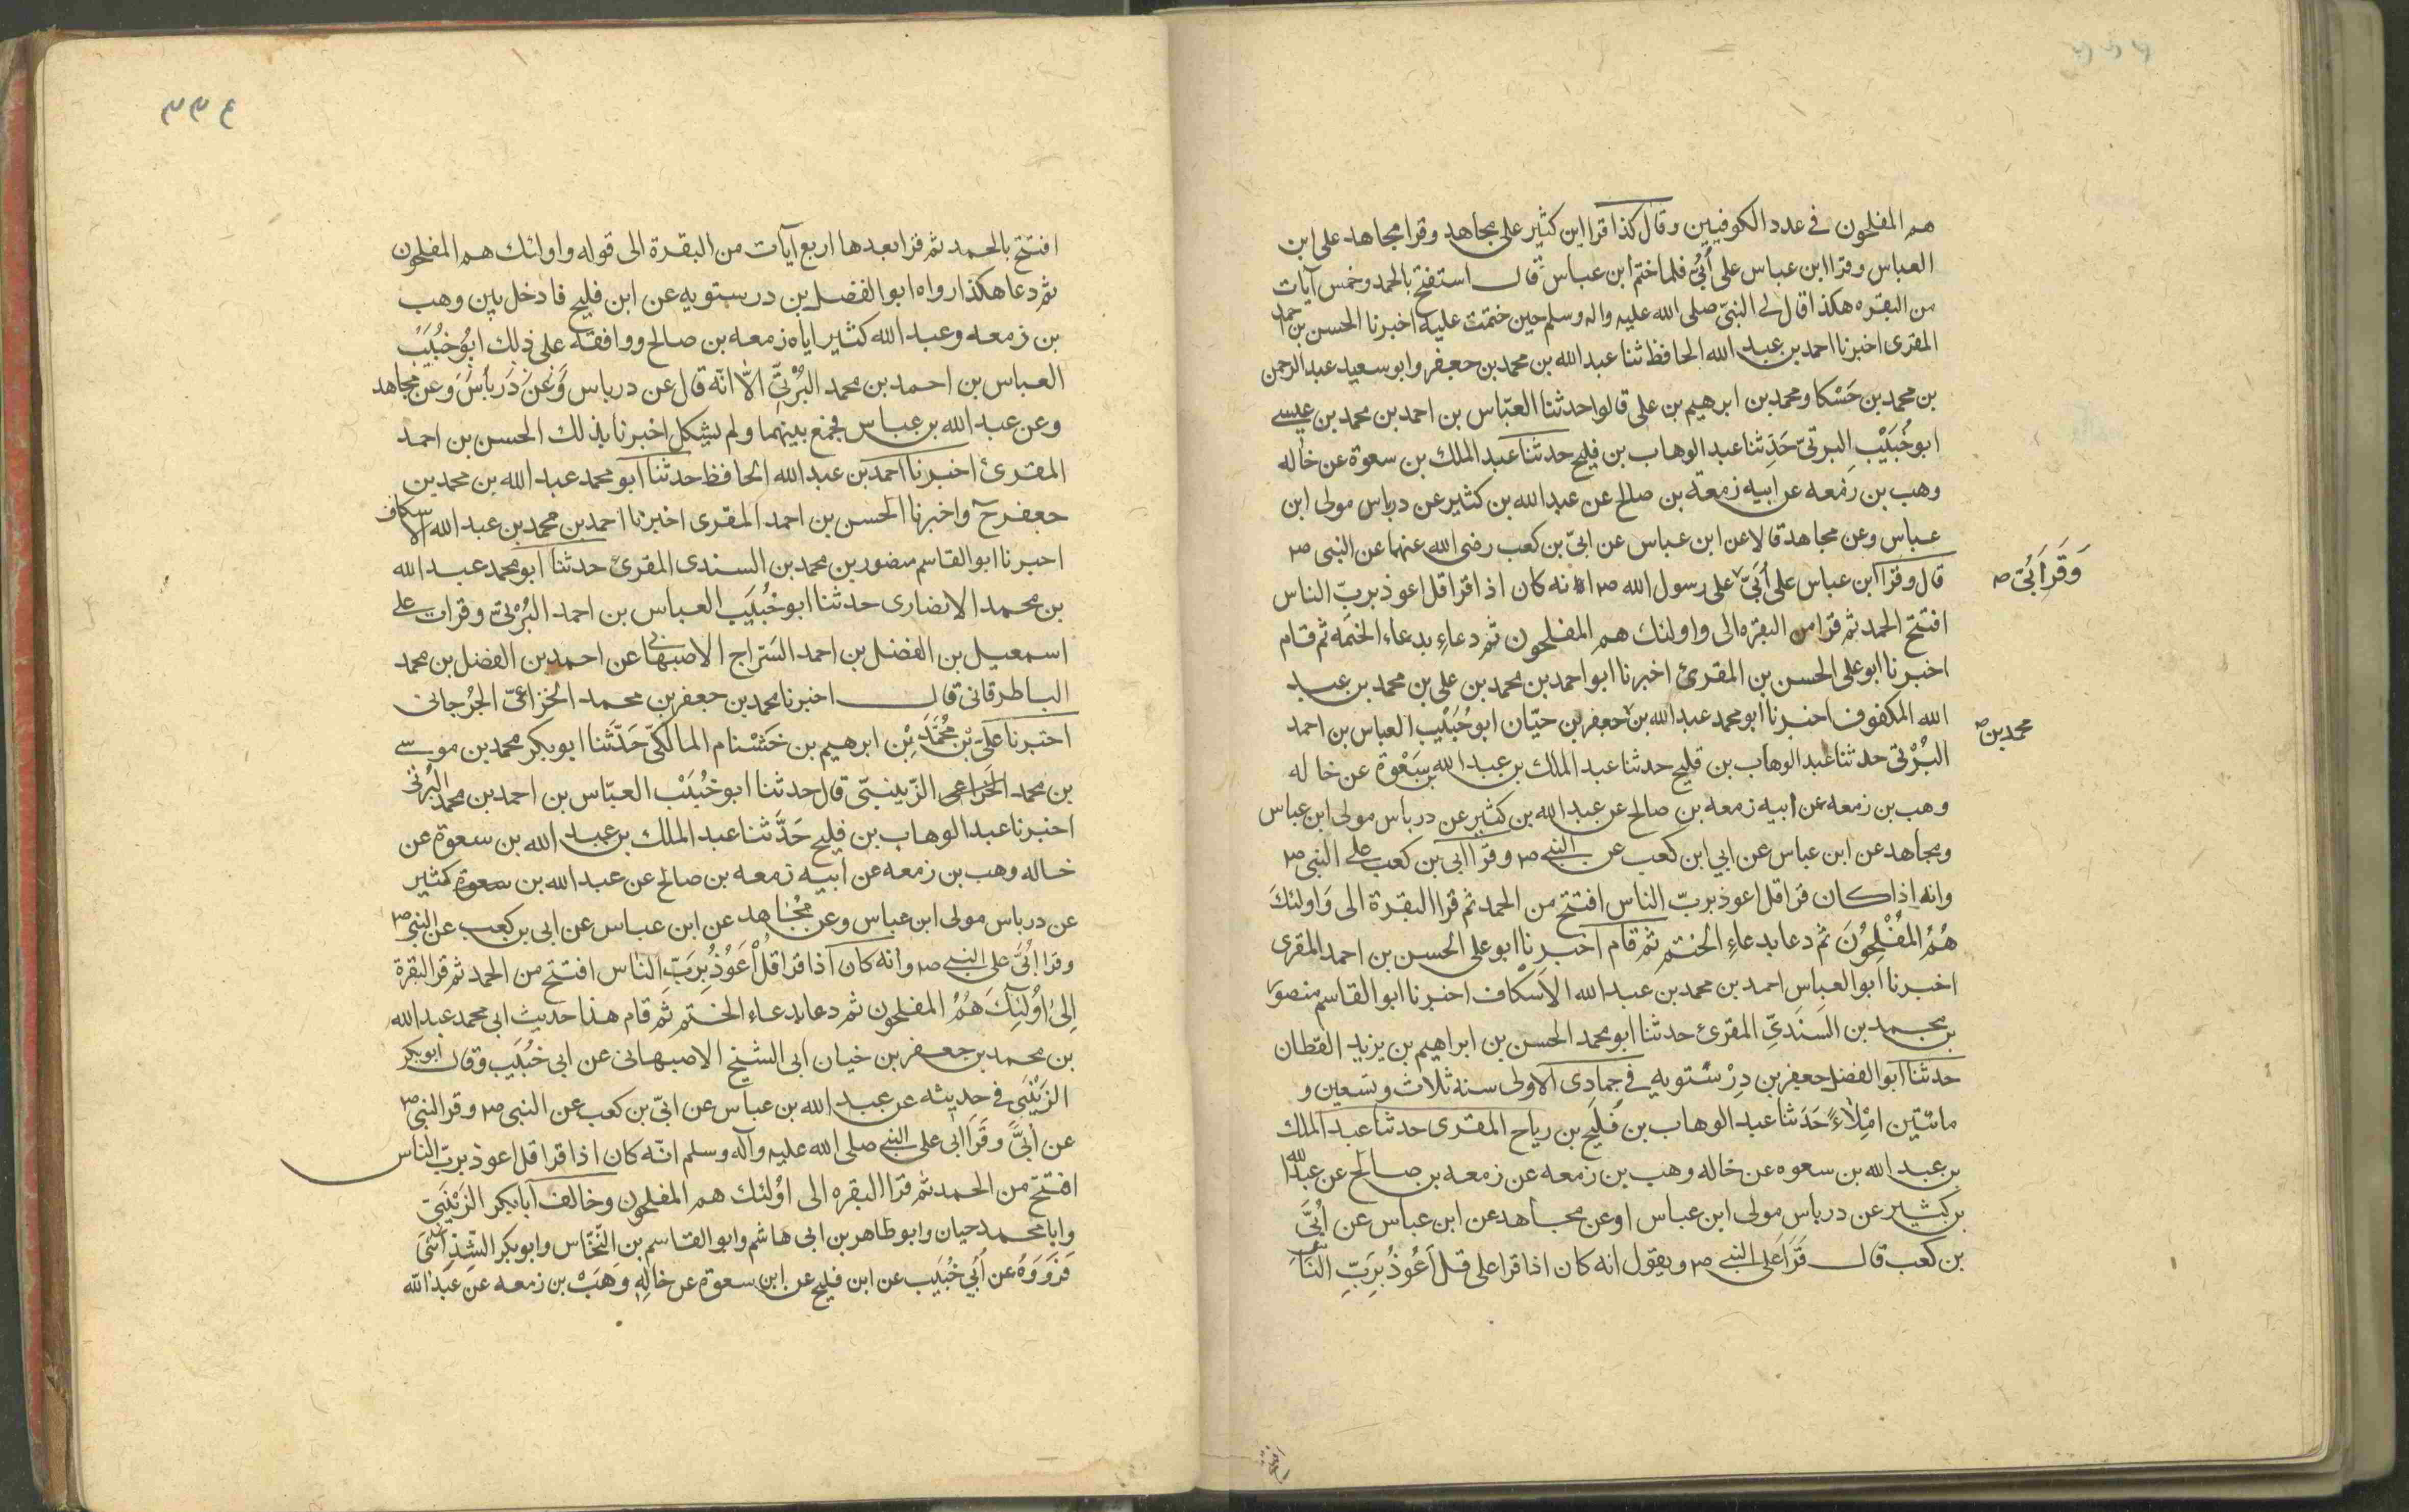 هم المفلحون فى عدد الكوفيين وقال كذا قرا ابن كثير على مجاهد وقرا مجاهد على ابن
العباس وقرا ابن عباس على أُبىّ فلما ختم ابن عباس قال استفتح بالحمد وخمس آيات
من البقره هكذا قال لى النبىّ صلى الله عليه واله وسلم حين ختمت عليه اخبرنا الحسن بن احمد
المقرى اخبرنا احمد بن عبد الله الحافظ ثنا عبد الله بن محمد بن جعفر وابو سعيد عبد الرحمن
بن محمد بن حَسْكا ومحمد بن ابرهيم بن على قالوا حدثنا العبّاس بن احمد بن محمد بن عيسے
ابو خُبَيْبِ البرتىّ حَدِثنا عبد الوهاب بن فليح حدثنا عبد الملك بن سعوة عن خاله
وهب بن زمعه عن ابيه زمعة بن صالح عن عبد الله بن كثير عن درباس مولى ابن
عباس وعن مجاهد قالا عن ابن عباس عن ابىّ بن كعب رضى الله عنهما عن النبى ص
قال وقرا ابن عباس على أُبَىّ على رسول الله ص انه كان اذا قرا قل اعوذ بربّ الناس
وَقَرَاَ بَىّ ص
افتتح الحمد ثم قرا من البقره الى واولئك هم المفلحون ثم دعاءِ بدعاء الختمَه ثم قام
اخبرنا ابو على الحسن بن المقرئ اخبرنا ابو احمد بن محمد بن على بن محمد بن عبد
الله المكفوف اخبرنا ابو محمد عبد الله بن جعفر بن حيّان ابو خُبَيْب العباس بن احمد
محمد بن ص
البُرْتى حدثنا عبد الوهاب بن فليح حدثنا عبد الملك بن عبد الله بن سَعْوة عن خاله
وهب بن زمعه عن ابيه زمعه بن صالح عن عبد الله بن كثير عن درباس مولى ابن عباس
ومجاهد عن ابن عباس عن ابي ابن كعب عن النبے ص وقرا ابى بن كعب على النبى ص
وانه اذا كان قرا قل اعوذ بربّ الناس افتتح من الحمد ثم قرا البقرة الى وَاولئكَ
هُمُ المُفْلِحُوْنَ ثم دعا بدعاءِ الختم ثم قام اخبرنا ابو على الحسن بن احمد المقرى
اخبرنا ابو العباس احمد بن محمد بن عبد الله الاَسْكاف اخبرنا ابو القاسم منصور
بن محمد بن السَنَدىّ المقرئ حدثنا ابو محمد الحسن بن ابراهيم بن يزيد القطان
حدثنا ابو الفضل جعفر بن دِرْسْتويه فى جمادى الاولى سنه ثلاث وتسعين و
مائتين امْلاءً حَدَثنا عبد الوهاب بن فَليح بن رياح المقرى حدثنا عبد الملك
بن عبد الله بن سعوه عن خاله وهب بن زمعه عن زمعه بن صالح عن عبد الله
بن كثير عن درباس مولى ابن عباس او عن مجاهد عن ابن عباس عن اُبىَّ
بن كعب قال قَرَا عَلى النبے ص ويقول انه كان اذا قرا على قل اَعُوْذُ بِرَبِّ النَّاسِ
٣٣٤
افتتح بالحمد ثم قرا بعدها اربع آيات من البقرة الى قوله واولئك هم المفلحون
ثم دعا هكذا رواه ابو الفضل بن درستويه عن ابن فليح فادخل بين وهب
بن زمعه وعبد الله كثير اياه زمعه بن صالح ووافقه على ذلك ابُو خُبُيَبْ
العباس بن احمد بن محمد البُرْتىَّ الّا انّه قال عن درباس وَعَنْ دَرباَسَ وعن مجاهد
وعن عبد الله بن عباس فجمع بينهما ولم يشكل اخبرنا بذلك الحسن بن احمد
المقرئ اخبرنا احمد بن عبد الله الحافظ حدثنا ابو محمد عبد الله بن محمد بن
جعفر ح واخبرنا الحسن بن احمد المقرى اخبرنا احمد بن محمد بن عبد الله الاسكاف
اخبرنا ابو القاسم منصور بن محمد بن السندى المقرئ حدثنا ابو محمد عبد الله
بن محمد الانصارى حدثنا ابو خُبُيَب العباس بن احمد البُرْتىّ وقرات على
اسمعيل بن الفضل بن احمد السَّراج الاصبهانى عن احمد بن الفضل بن محمد
الباطرقانى قال اخبرنا محمد بن جعفر بن محمد الخزاعىّ الجُرجانى
اخبرنا عَلىّ بْن مُحَمَّدَ بِْن ابرهيم بن خَشْنام المالكىّ حَدَّثنا ابو بكر محمد بن موسے
بن محمد الخزاعى الزّينبّى قال حدثنا ابو خُبُيَبْ العبّاس بن احمد بن محمد البُرتى
اخبرنا عبد الوهاب بن فليح حَدَّثنا عبد الملك بن عبد الله بن سعوة عن
خاله وهب بن زمعه عن ابيه زمعه بن صالح عن عبد الله بن سعوة كثير
عن درباس مولى ابن عباس وعن مُجْاهد عن ابن عباس عن ابى بن كعب عن النبى ص
وقرا اُبَىَّ على النبے ص وانه كان اذا قرا قلْ اَعَوُذُ بِرَبّ النَاس افتتح من الحمد ثم قرا البقرة
اِلىْ اوُلئِكَ هُمُ المفلحون ثم دعا بدعاء الختم ثم قام هذا حديث ابى محمد عبد الله
بن محمد بن جعفر بن خيان ابى الشيخ الاصبهانى عن ابى خُبُيَب وقال ابو بكر
الزَيْنَبي فى حديثه عن عبد الله بن عباس عن ابىّ بن كعب عن النبى ص وقرا النبى ص
عن اُبىًّ وقَرَا ابى على النبے صلى الله عليه وآله وسلم انّه كان اذا قرا قل اعوذ بربّ الناس
افتتح من الحمد ثم قرا البقره الى اوُلئك هم المفلحون وخالف ابا بكر الزَيْنبَىّ
وابا محمد حيان وابو طاهر بن ابى هاشم وابو القاسم بن النّخّاس وابو بكر الشذائى
فَرَوَوَهُ عن اَبُي خُبُيَب عن ابن فليح عن ابن سعوة عن خالِهِ وَهَبْ بن زمعه عن عَبْد الله